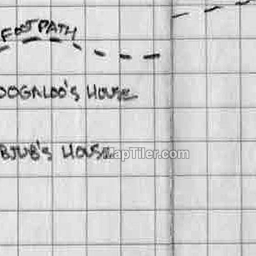 FOOTPATH
OOGALOO'S HOUSE
BJUB'S HOUSE
MapTiler.com